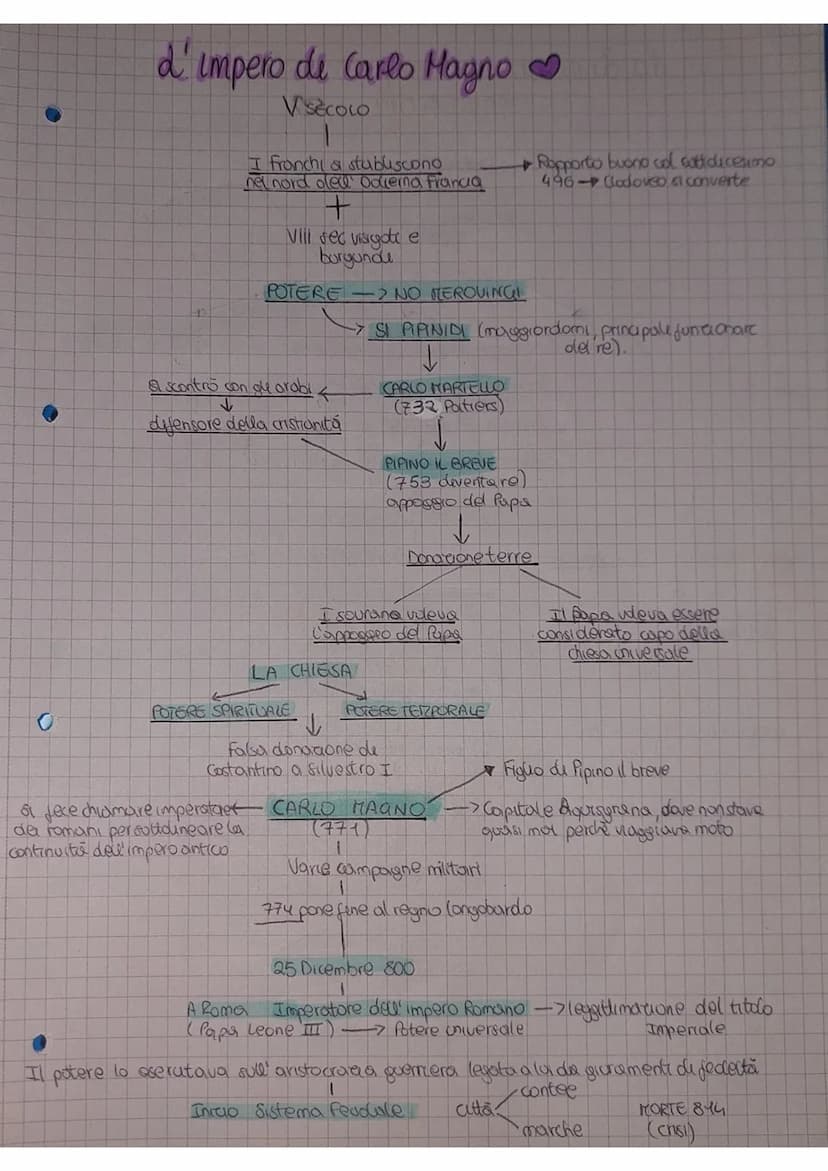 L'impero di Carlo Magno
V secolo
I franchi si stabiliscono
nel nord dell'Odierna Francia
→ Rapporto buono col cattolicesimo
496 → Clodoveo si converte
+
VIII sec visigoti e
burgundi
POTERE → NO MEROVINGI
→ SI PIPINIDI (maggiordomi, principale funzionario
del re).
CARLO MARTELLO
(732 Poitiers)
si scontrò con gli arabi
difensore della cristianità
PIPINO IL BREVE
(753 diventa re)
appoggio del Papa
Donazione terre
I sovrano voleva
l'appoggio del Papa
Il Papa voleva essere
considerato capo della
chiesa universale
LA CHIESA
POTERE SPIRITUALE
POTERE TEMPORALE
Falsa donazione di
Costantino a Silvestro I
Figlio di Pipino il breve
si fece chiamare imperatore
dei romani per sottolineare la
continuità dell'impero antico
CARLO MAGNO
(771)
→ Capitale Aquisgrana, dove non stava
quasi mai perchè viaggiava molto
Varie campagne militari
774 pone fine al regno longobardo
25 Dicembre 800
A Roma Imperatore dell'impero Romano → legittimazione del titolo
(Papa Leone III) → Potere universale Imperiale
Il potere lo esercitava sull'aristocrazia guerriera legata a lui da giuramenti di fedeltà
Inizio Sistema Feudale
città
contee
marche
MORTE 814
(crisi)